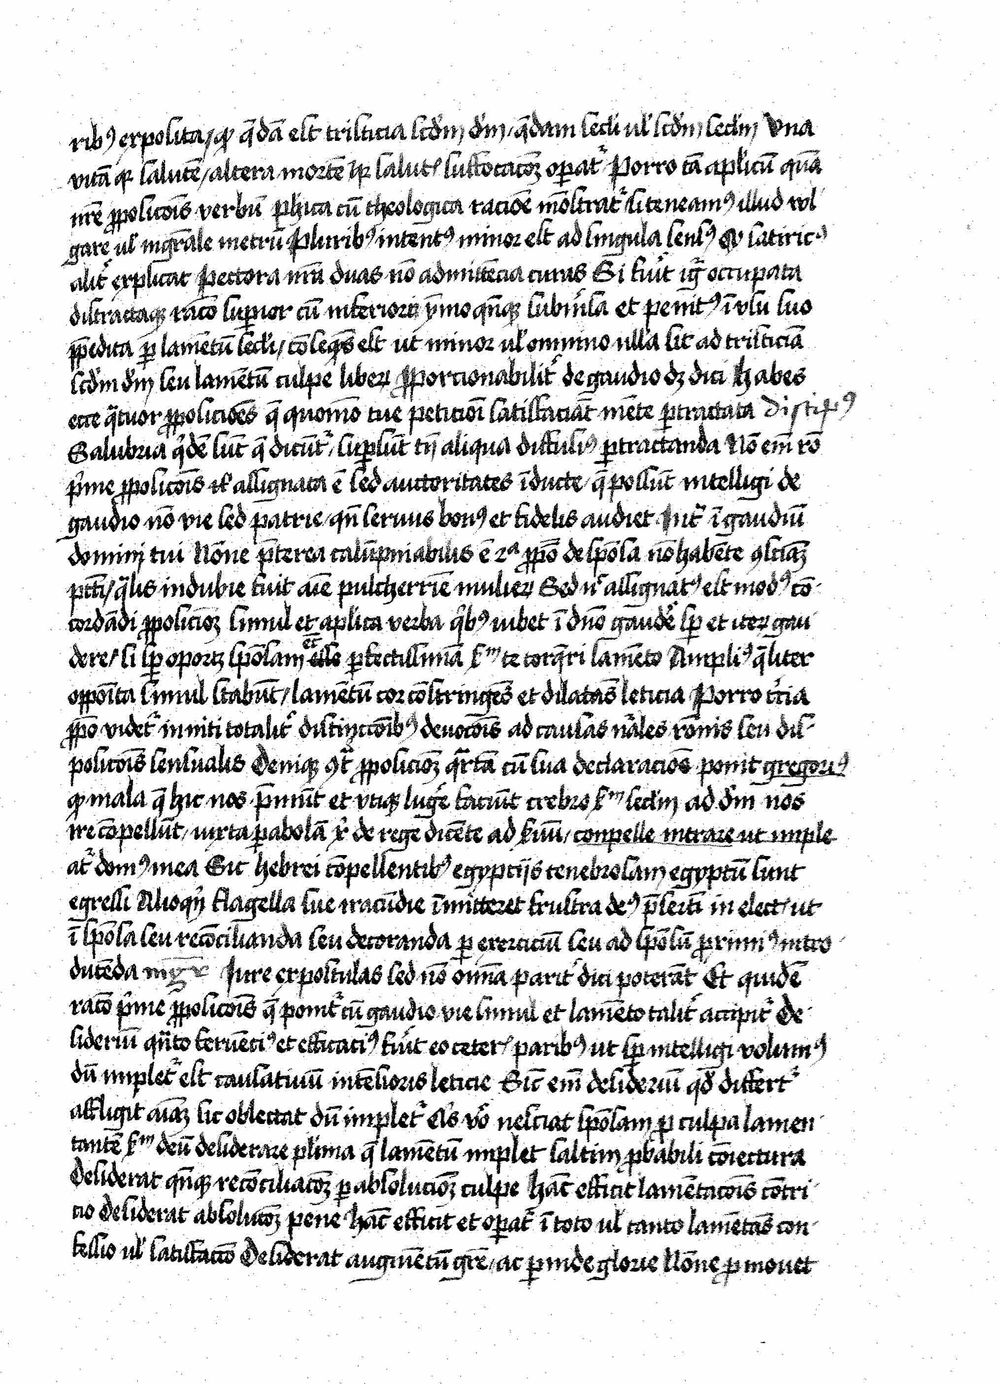 rib⁹ exposita / qꝫ q̄dā est tristicia scd̄m d̄m / q̄dam secli ul' scd̄m secl'm Vna
vitā qꝫ salutē / altera mortē ⁊ salut' suffocacōꝫ oꝑat᷑ Porro tā apl'icū quā
nr̄e ꝓpōicōis verbū phīca cū theologica racōe mōstrat᷑ si teneam⁹ illud vol
gare ul' mgr̄ale metrū Plurib⁹ intent⁹ minor est ad singula sens⁹ Qꝫ satiric⁹
alit᷑ explicat Pectora nr̄a duas nō admittēcia curas Si fu'it ig᷑ occupata
distractaqꝫ racō suꝑior cū inferiori ymo qn̄qꝫ subm'sa et penit⁹ ī vsu suo
p̄pedita ꝑ lamētū secli / cōseq̄s est ut minor ul' omnino nulla sit ad tristiciā
scd̄m d̄m seu lamētū culpe liberꝝ Proporcionabilit᷑ de gaudio dꝫ dici Habes
ecce q̄tuor ꝓposicōes q̄ quomō tue peticioni satisfaciāt mēte ꝑtractata discip⁹
Salubria q'dē sūt q̄ dicūt᷑ / suꝑsūt tn̄ aliqua diffusi⁹ ꝑtractanda Nō em̄ rō
p'me ꝓposicōis n̄ assignata ē sed auctoritates īducte / q̄ possūt intelligi de
gaudio nō vie sed patrie / qn̄ seruus bon⁹ et fidelis audiet Int᷑ ī gaudiū
domini tui Nōne p̄terea calūpniabilis ē 2ᵃ ꝓpō de spōsa nō habēte ꝯsciāꝫ
pcc̄i / q̄lis indubie fuit aīe pulcherrīe mulieꝝ Sed n̄ assignat⁹ est mod⁹ cō-
cordādi ꝓposicōꝫ simul et aplīca verba q'b⁹ iubet ī dn̄o gaudē sp̄ et iteꝝ gau
dere / si sp̄ oportꝫ spōsam et ꝑfectissimā fᵐ te torq̄ri lamēto Ampli⁹ q̄liter
opp̄oīta simul stabūt / lamētū cor cōstringēs et dilatās leticia Porro t'cia
ꝓpō videt᷑ inniti totalit᷑ distinccōib⁹ deuocōis ad causas nāles rōnis seu dis-
posicōis sensualis Deniqꝫ ꝯt᷑ ꝓposicōꝫ q̄rtā cū sua declaracōe ponit gregori⁹
qꝫ mala q̄ hic nos p̄mūt et vtiqꝫ lugē faciūt crebro fᵐ secl'm ad d̄m nos
ire cōpellūt / iuxta ꝑabolā x̄ de rege dicēte ad s'uū / conpelle intrare ut imple
at᷑ dom⁹ mea Sic hebrei cōpellentib⁹ egypcijs tenebrosam egyptū sunt
egressi Alioqn̄ flagella sue iracūdie īmitteret frustra de⁹ p̄serti in elect' / ut
ī spōsa seu recōcilianda seu decoranda ꝑ exerciciū seu ad spōsū ꝓxīmi⁹ intro
ducēda mgr̄ Iure expostulas sed nō oīna parit᷑ dici poterāt Et quidē
racō p'me ꝓposicōis q̄ ponit᷑ cū gaudio vie simul et lamēto talit᷑ accipit᷑ De
sideriū qn̄to feruēci⁹ et efficaci⁹ fu'it eo ceter' parib⁹ ut sp̄ intelligi volum⁹
dū implet᷑ est causatiuū intēsioris leticie Sic em̄ desideriū qd̄ differt᷑
affligit aīaꝫ sic oblectat dū implet᷑ Q's vō nesciat spōsam ꝓ culpa lamen-
tantē fᵐ deū desiderare pl'ima q̄ lamētū implet saltim ꝓbabili cōiectura
Desiderat qn̄qꝫ recōciliacōꝫ ꝑ absolucōꝫ culpe hāc efficit lamētacōis cōtri-
cio Desiderat absolucōꝫ pene hāc efficit et oꝑat᷑ ī toto ul' tanto lamētās con-
fessio ul' satisfaccō Desiderat augmētū gr̄e / ac ꝑinde glorie Nōne ꝓmouet